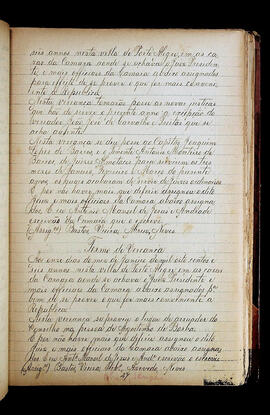 seis annos nesta villa de Porto Alegre, em as ca-
zas da Camara aonde se achava o Juiz Presiden-
te, e mais officiaes da Camara abaixo assignados
para effeito de se prover o que for mais conveni-
ente á Republica.
Nesta vereança tomarão posse as novas justiças
que hão de servir o presente anno á excepção do
vereador João José de Carvalho e Freitas que se
acha ausente.
Nesta vereança se deu posse ao Capitão Joaquim
Lopes de Barros e o Tenente Antonio Monteiro de
Barros, de Juizes Almotaceis para servirem os tres
mezes de Janeiro, Fevereiro e Março do presente
anno, os quaes acabaram de servir de Juizes ordinarios.
E por não haver mais que deferir assignou o dito
Juiz e mais officiaes da Camara abaixo assigna-
dos. E eu Antonio Manoel de Jesus e Andrade
escrivão da Camara que o escrevi.
(Assig.) Bastos, Vieira,
Termo de Vereança
Aos onze dias do mez de Janeiro de mil oito centos e
seis annos nesta villa de Porto Alegre em as cazas
da Camara aonde se achava o Juiz Presidente e
mais officiaes da Camara abaixo assignados p.
bem de se prover o que for mais conveniente á
Republica
Nesta vereança se proveu o lugar de arruador do
Conselho na pessoa de Agostinho
E por não haver mais que deferir assignou o dito
Juiz e mais officiaes da Camara abaixo assigna-
dos. E eu Ant. Manoel de Jesus e And. escrivão o escrevi
(Assig.) Bastos, Vieira, Azevedo,